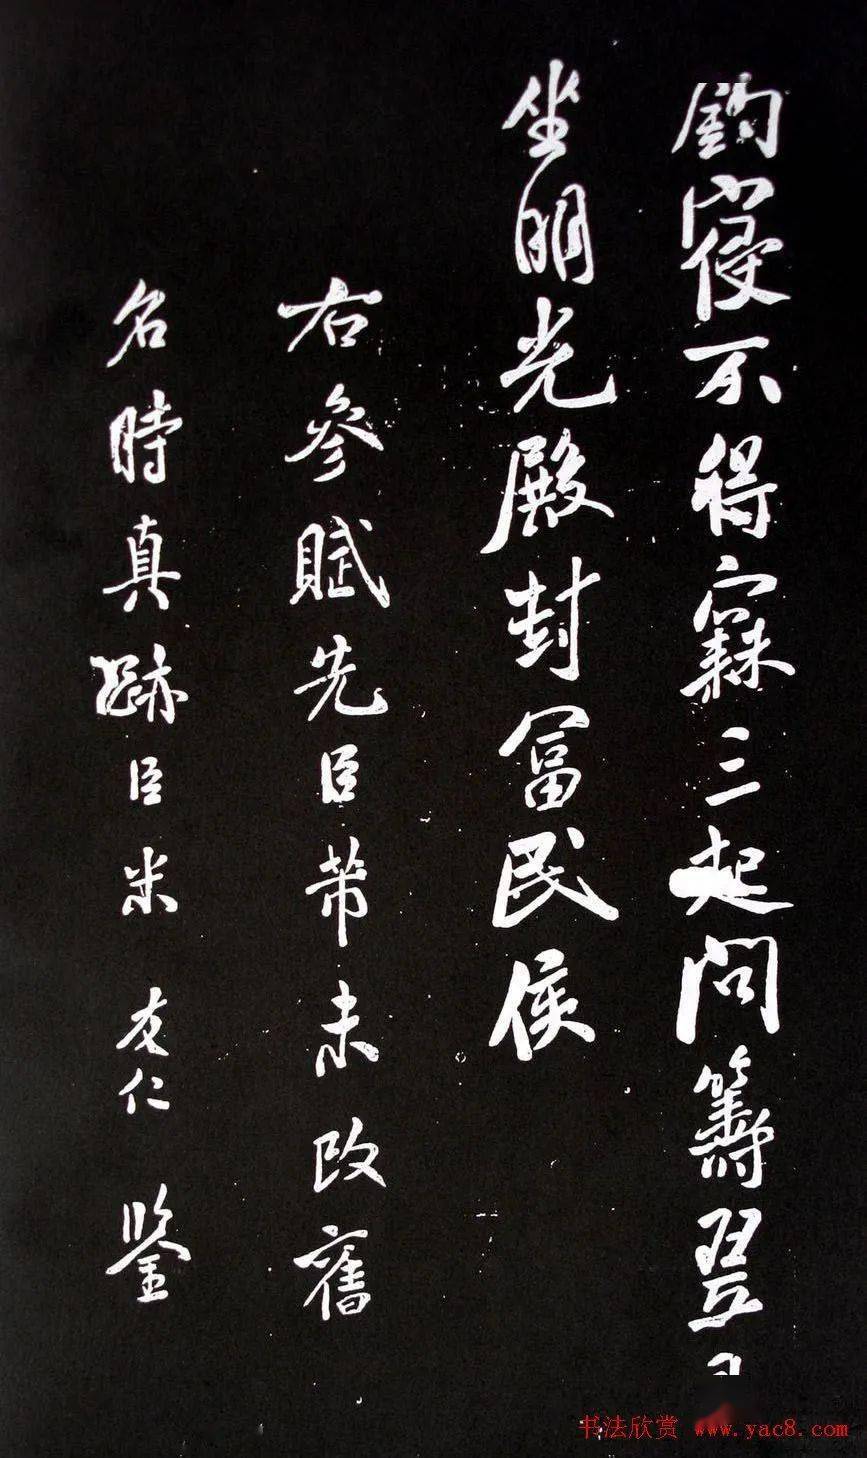 鈞寢不得寐三起問籌翌
坐明光殿封冨民侯
右參賦先臣芾未改舊
名時真跡臣米友仁鑒
书法欣赏 www.yac8.com